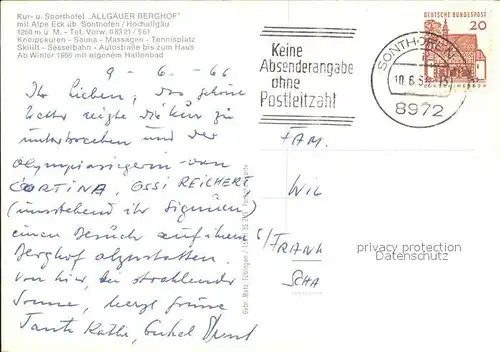 Kur- u. Sporthotel "ALLGÄUER BERGHOF"
mit Alpe Eck üb. Sonthofen / Hochallgäu
1260 m ü. M. - Tel. Vorw. 08321 / 561
Kneippkuren - Sauna - Massagen - Tennisplatz
Skilift - Sesselbahn - Autostraße bis zum Haus
Ab Winter 1966 mit eigenem Hallenbad
9 - 6. - 66
Ihr Lieben, das schöne
Wetter reizte die Kur zu
unterbrechen und der
Olympiasiegerin von
CORTINA, OSSI REICHERT
(umstehend ihr Signum)
einen Besuch auf ihrem
Berghof abzustatten.
Von hier, bei strahlender
Sonne, herzl. Grüße
Tante Käthi, Onkel Ernst
Gebr. Metz Tübingen
Keine
Absenderangabe
ohne
Postleitzahl
SONTHOFEN
8972
DEUTSCHE BUNDESPOST
20
FAM.
WIL
6/FRANK
SCHA
privacy protection
Datenschutz